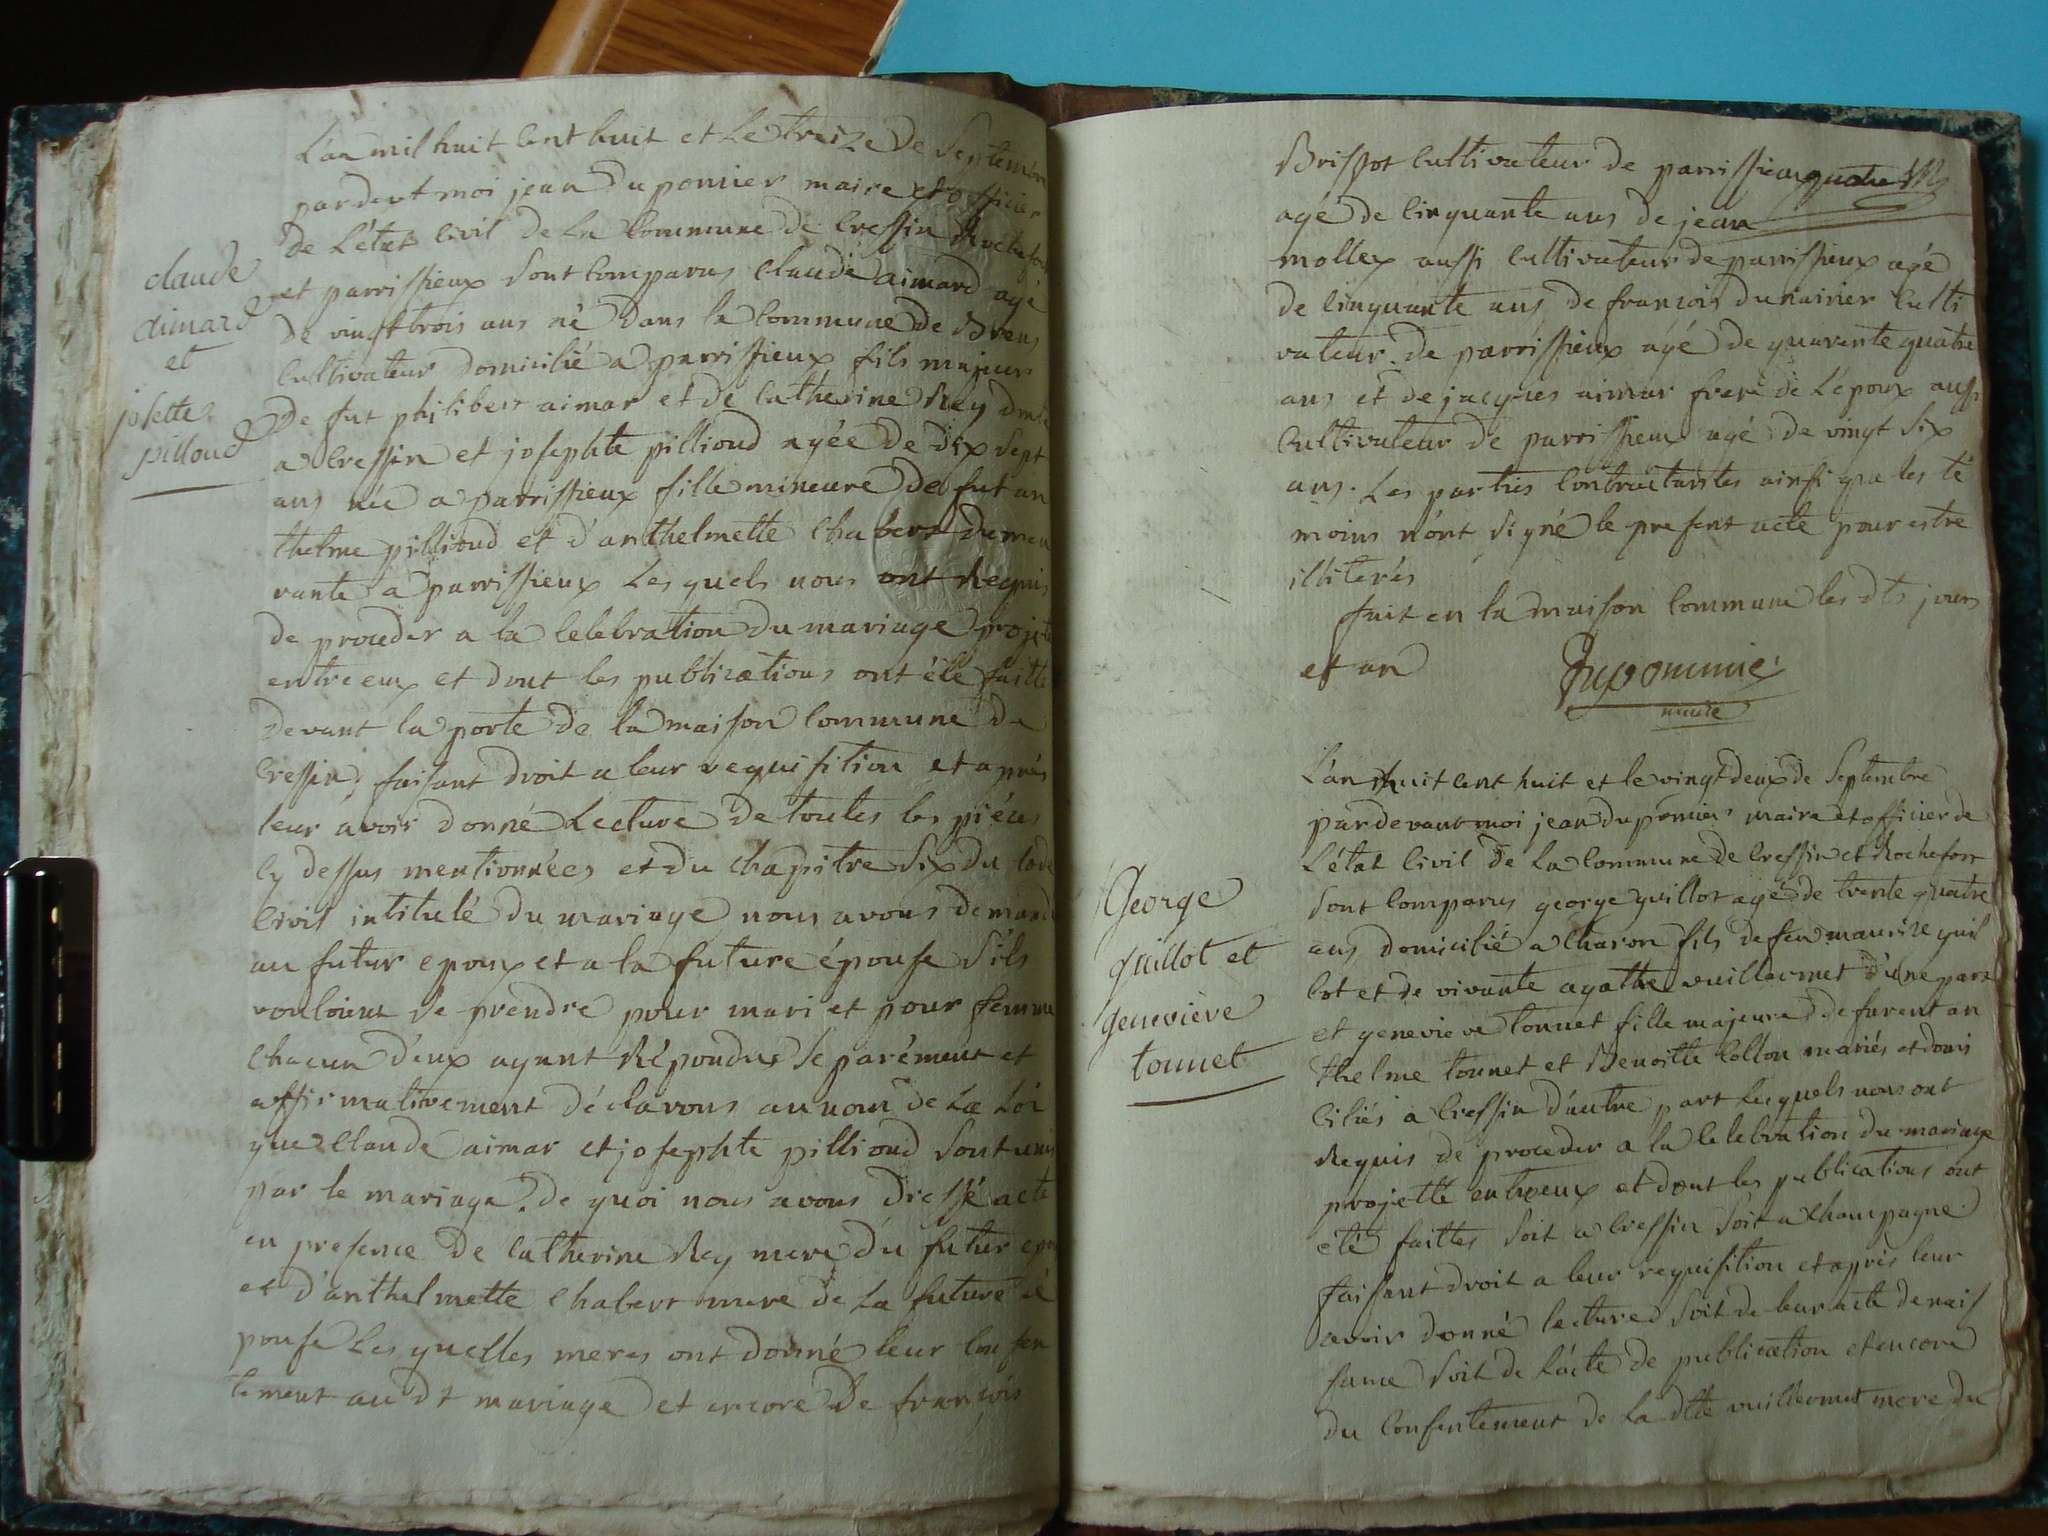 claude
aimard
et
josette
pilloud
L'an mil huit cent huit et le treize de Septembre
pardevt moi jean duponnier maire et officier
de L'état Civil de La Commune de Cressin Rochefort
et parrissieux Sont Comparus Claude aimard agé
de vingt trois ans né dans la Commune de Brens
Cultivateur domicilié a parrissieux fils majeur
De fut philibert aimar et de Catherine Rey
a Cressin et josephte pillioud agée de dix Sept
ans née a parrissieux fille mineure de fut an
thelme pillioud et d'anthelmette Chabert demeu
rante a parrissieux Les quels nous ont Requis
de proceder a la Celebration du mariage projetté
entre eux et dont les publications ont été faittes
devant la porte de la maison Commune de
Cressin; faisant droit a leur requisition et après
leur avoir donné Lecture de toutes les piéces
Cy dessus mentionnées et du Chapitre Six du Code
Civil intitulé du mariage nous avons demandé
au futur epoux et a la future épouse S'ils
vouloient Se prendre pour mari et pour femme
Chacun d'eux ayant Répondus Separément et
affirmativement déclarons au nom de La Loi
que Claude aimar et josephte pillioud Sont unis
par le mariage. de quoi nous avons dressé acte
en presence de Catherine Rey mere du futur epoux
et d'anthelmette Chabert mere de La future é
pouse Les quelles meres ont donné leur Consen
tement au dt mariage et encore de françois
Brissot Cultivateur de parrissieux
agé de Cinquante ans de jean
mollex aussi Cultivateur de parrissieux agé
de Cinquante ans de francois Culti
vateur de parrissieux agé de quarente quatre
ans et de jacques aimar frere de L'époux aussi
Cultivateur de parrissieux agé de vingt Six
ans. Les parties Contractantes ainsi que les té
moins n'ont Signé le present acte pour estre
illiterés
fait en la maison Commune les dts jours
et an
Duponnier
maire
George
guillot et
genevieve
tonnet
L'an huit cent huit et le vingt deux de Septembre
pardevant moi jean duponnier maire et officier de
L'état Civil de La Commune de Cressin et Rochefort
Sont Comparus george guillot agé de trente quatre
ans domicilié a Charon fils de feu maurise guil
lot et de vivante agathe vuillermet d'une part
et genevieve tonnet fille majeure de furent an
thelme tonnet et Benoitte Collon mariés et domi
Ciliés a Cressin d'autre part Lesquels nous ont
Requis de proceder a la Celebration du mariage
projetté entre eux et dont les publications ont
été faittes Soit a Cressin Soit a Champagne
faisant droit a leur requisition et après leur
avoir donné lecture Soit de leur acte de nais
sance Soit de L'acte de publication et encore
du Consentement de La dtte vuillermet mere du